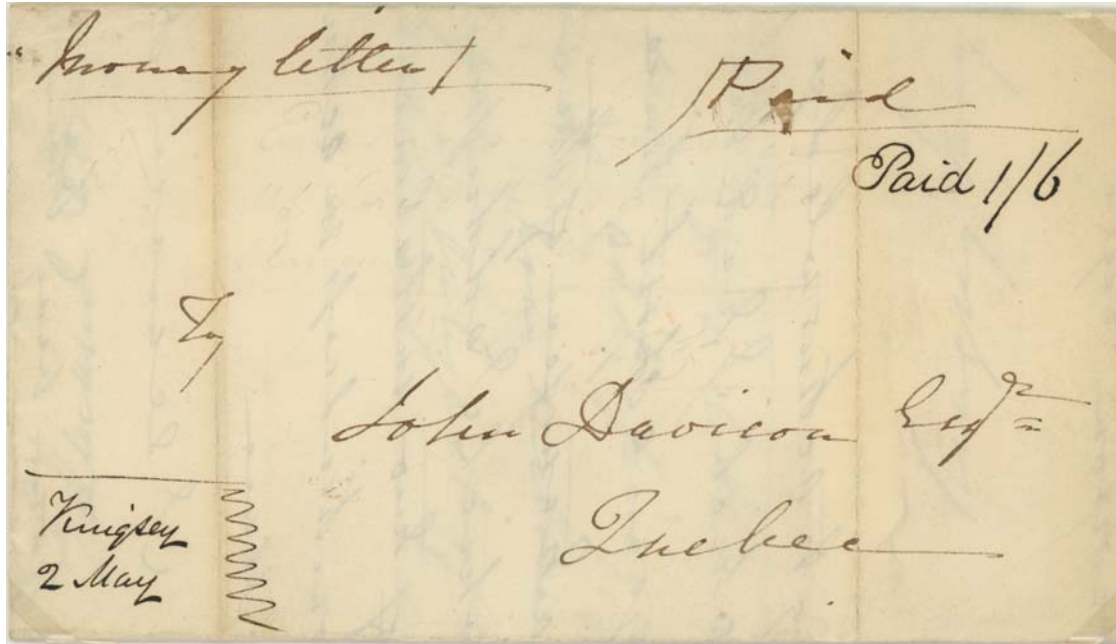 "Money letter"
Paid
Paid 1/6
To
John Davison Esqr
Quebec
Kingsey
2 May